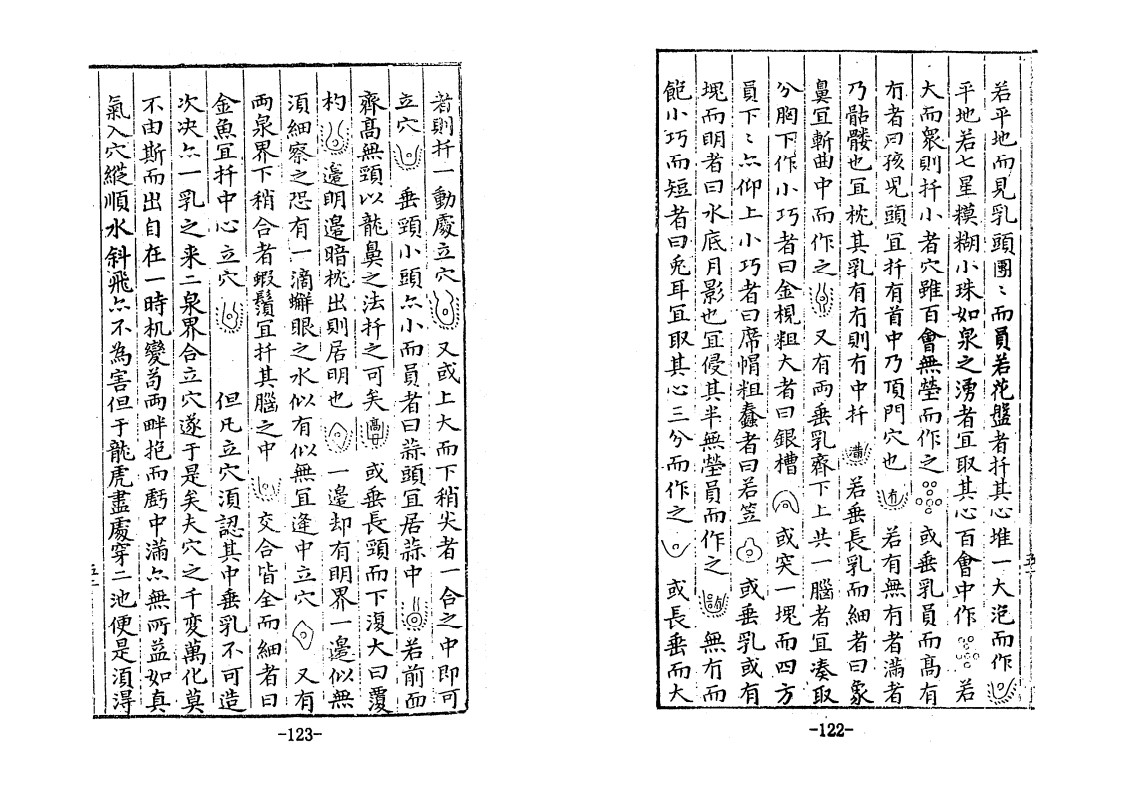 若平地而見乳頭團〻而員若花盤者扦其心堆一大泡而作
平地若七星糢糊小珠如泉之湧者宜取其心百會中作 若
大而衆則扦小者穴雖百會無塋而作之 或垂乳員而髙有
冇者曰孩児頭宜扦有首中乃頂門穴也 冇 若有無冇者滿者
乃骷髏也宜枕其乳有冇則冇中扦 滿 若垂長乳而細者曰象
鼻宜斬曲中而作之 又有两垂乳齊下上共一腦者宜凑取
分胸下作小巧者曰金梘粗大者曰銀槽 或突一塊而四方
員下〻亽仰上小巧者曰席帽粗蠢者曰若笠 或垂乳或有
塊而明者曰水底月影也宜侵其半無塋員而作之 無冇而
飽小巧而短者曰兎耳宜取其心三分而作之 或長垂而大
若則扦一動處立穴 又或上大而下稍尖者一合之中即可
立穴 垂頸小頭亽小而員者曰蒜頭宜居蒜中 若前面
齊髙無頸以龍鼻之法扦之可矣 或垂長頸而下復大曰覆
杓 邉明邉暗枕出則居明也 一邉却有明界一邉似無
湏細察之恐有一滴蠏眼之水似有似無宜逢中立穴 又有
两泉界下稍合者蝦鬚宜扦其腦之中 交合皆全而細者曰
金魚宜扦中心立穴 但凡立穴湏認其中垂乳不可造
次决亽一乳之来二泉界合立穴遂于是矣夫穴之千変萬化莫
不由斯而出自在一時机變苟两畔抱而虧中滿亽無所益如真
氣入穴縱順水斜飛亽不為害但于龍虎盡處穿二池便是湏淂
-123-
-122-